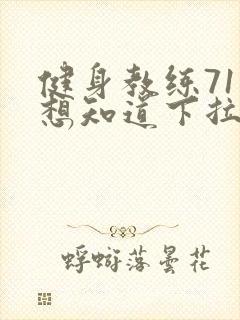 健身教练71
想知道下拉
蜉蝣落昙花